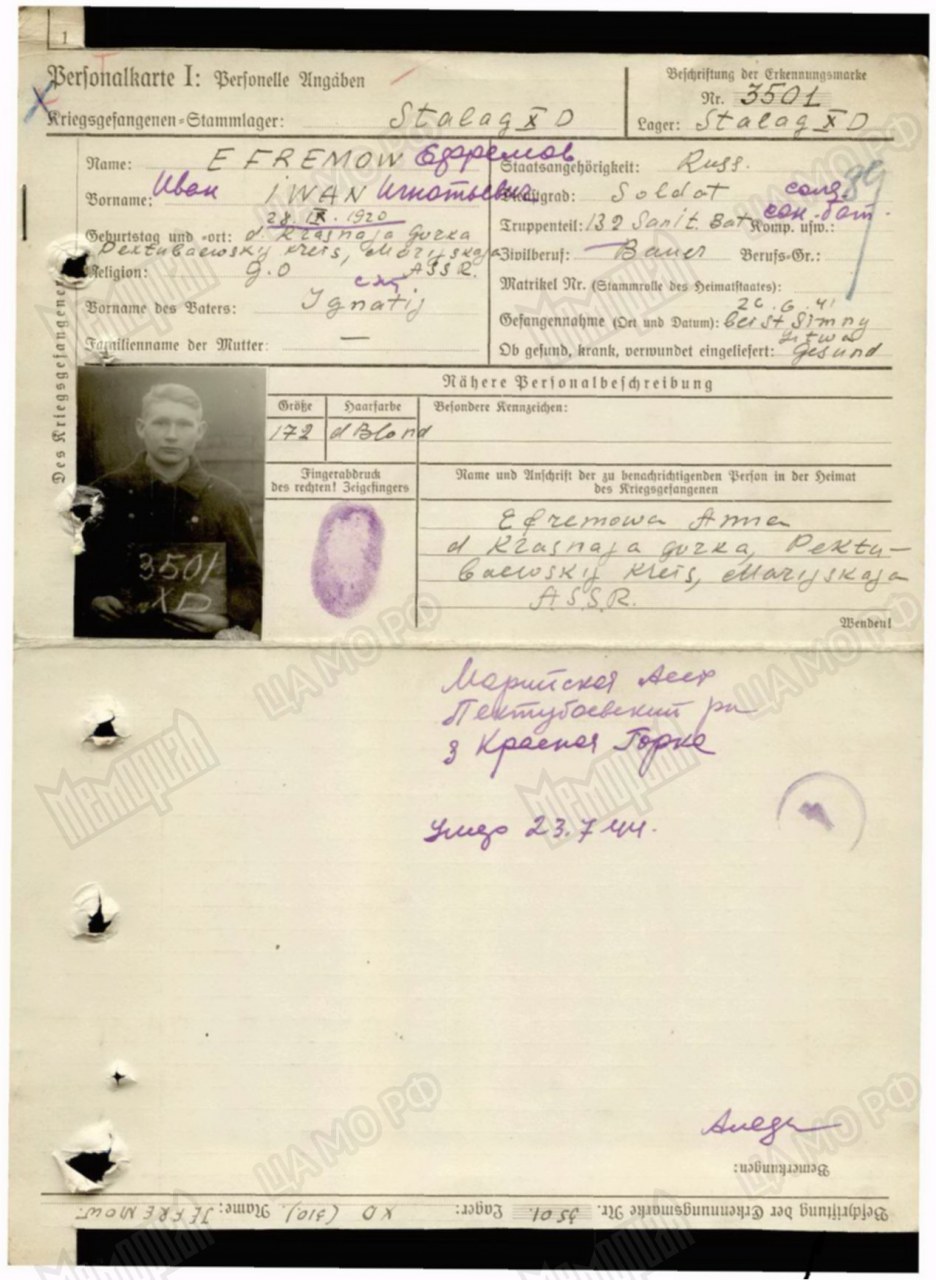 1
Personalkarte I: Personelle Angaben
Kriegsgefangenen-Stammlager: Stalag X D
Beschriftung der Erkennungsmarke
Nr. 3501
Lager: Stalag X D
Name: EFREMOW Ефремов
Vorname: Иван IWAN Игнатьевич
28.IX.1920
Geburtstag und -ort: d. Krasnaja Gorka
Pektubaewskij Kreis, Marijskaja
Religion: g.O ASSR.
Vorname des Vaters: Ignatij
Familienname der Mutter: —
Staatsangehörigkeit: Russ.
Dienstgrad: Soldat солд
Truppenteil: 132 Sanit. Bat Komp. usw.: сан. бат.
Zivilberuf: Bauer Berufs-Gr.:
Matrikel Nr. (Stammrolle des Heimatstaates):
26.6.41
Gefangennahme (Ort und Datum):
Ob gesund, krank, verwundet eingeliefert: Gesund
Des Kriegsgefangenen
Nähere Personalbeschreibung
Größe Haarfarbe Besondere Kennzeichen:
172 d Blond
Fingerabdruck
des rechten! Zeigefingers
Name und Anschrift der zu benachrichtigenden Person in der Heimat
des Kriegsgefangenen
Efremowa Anna
d Krasnaja gorka, Pektu-
baewskij Kreis, Marijskaja
ASSR.
Wenden!
3501
XD
Марийская Асср
Пектубаевский рн
д Красная Горка
Умер 23.7 44.
Bemerkungen:
Beschriftung der Erkennungsmarke Nr. 3501. Lager: XD (310) Name: JEFREMOW
ЦАМО РФ
Мемориал